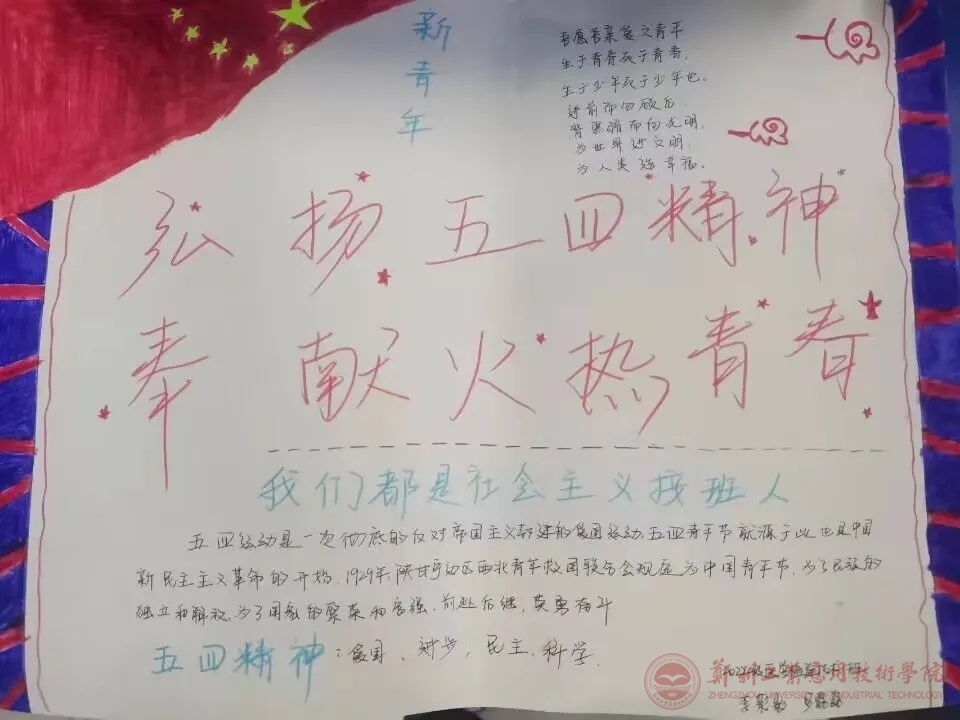 新青年
吾愿吾亲爱之青年
生于青春死于青春,
生于少年死于少年也。
进前而勿顾后
背黑暗而向光明,
为世界进文明,
为人类造幸福。
弘扬五四精神
奉献火热青春
我们都是社会主义接班人
五四运动是一次彻底的反对帝国主义封建的爱国运动,五四青年节就源于此也是中国
新民主主义革命的开始,1929年,陕甘宁边区西北青年救国联合会规定为中国青年节,为了民族的
独立和解放,为了国家的繁荣和富强,前赴后继,英勇奋斗
五四精神:爱国、进步,民主,科学.
郑州工业应用技术学院
ZHENGZHOU UNIVERSITY OF INDUSTRIAL TECHNOLOGY